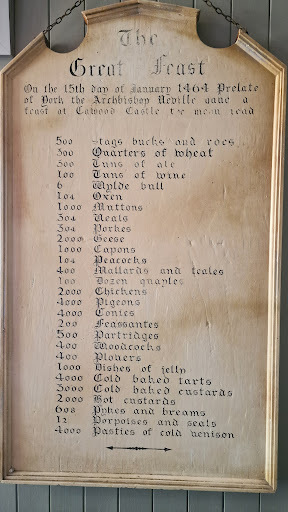 The
Great Feast
On the 15th day of January 1464 Prelate
of York the Archbishop Neville gave a
feast at Cawood Castle the menu read
500 Stags bucks and roes
300 Quarters of wheat
300 Tuns of ale
100 Tuns of wine
6 Wylde bull
104 Oxen
1000 Muttons
304 Veals
304 Porkes
2000 Geese
1000 Capons
104 Peacocks
400 Mallards and teales
100 Dozen quayles
2000 Chickens
4000 Pigeons
4000 Conies
200 Feassantes
500 Partridges
400 Woodcocks
400 Plovers
1000 Dishes of jelly
4000 Cold baked tarts
3000 Cold baked custards
2000 Hot custards
608 Pykes and breams
12 Porpoises and seals
4000 Pasties of cold venison